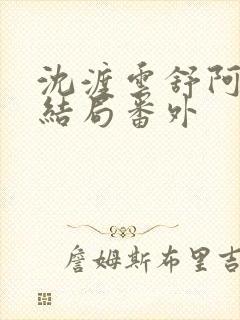 沈渡雪舒阿
結局番外
詹姆斯布里吉